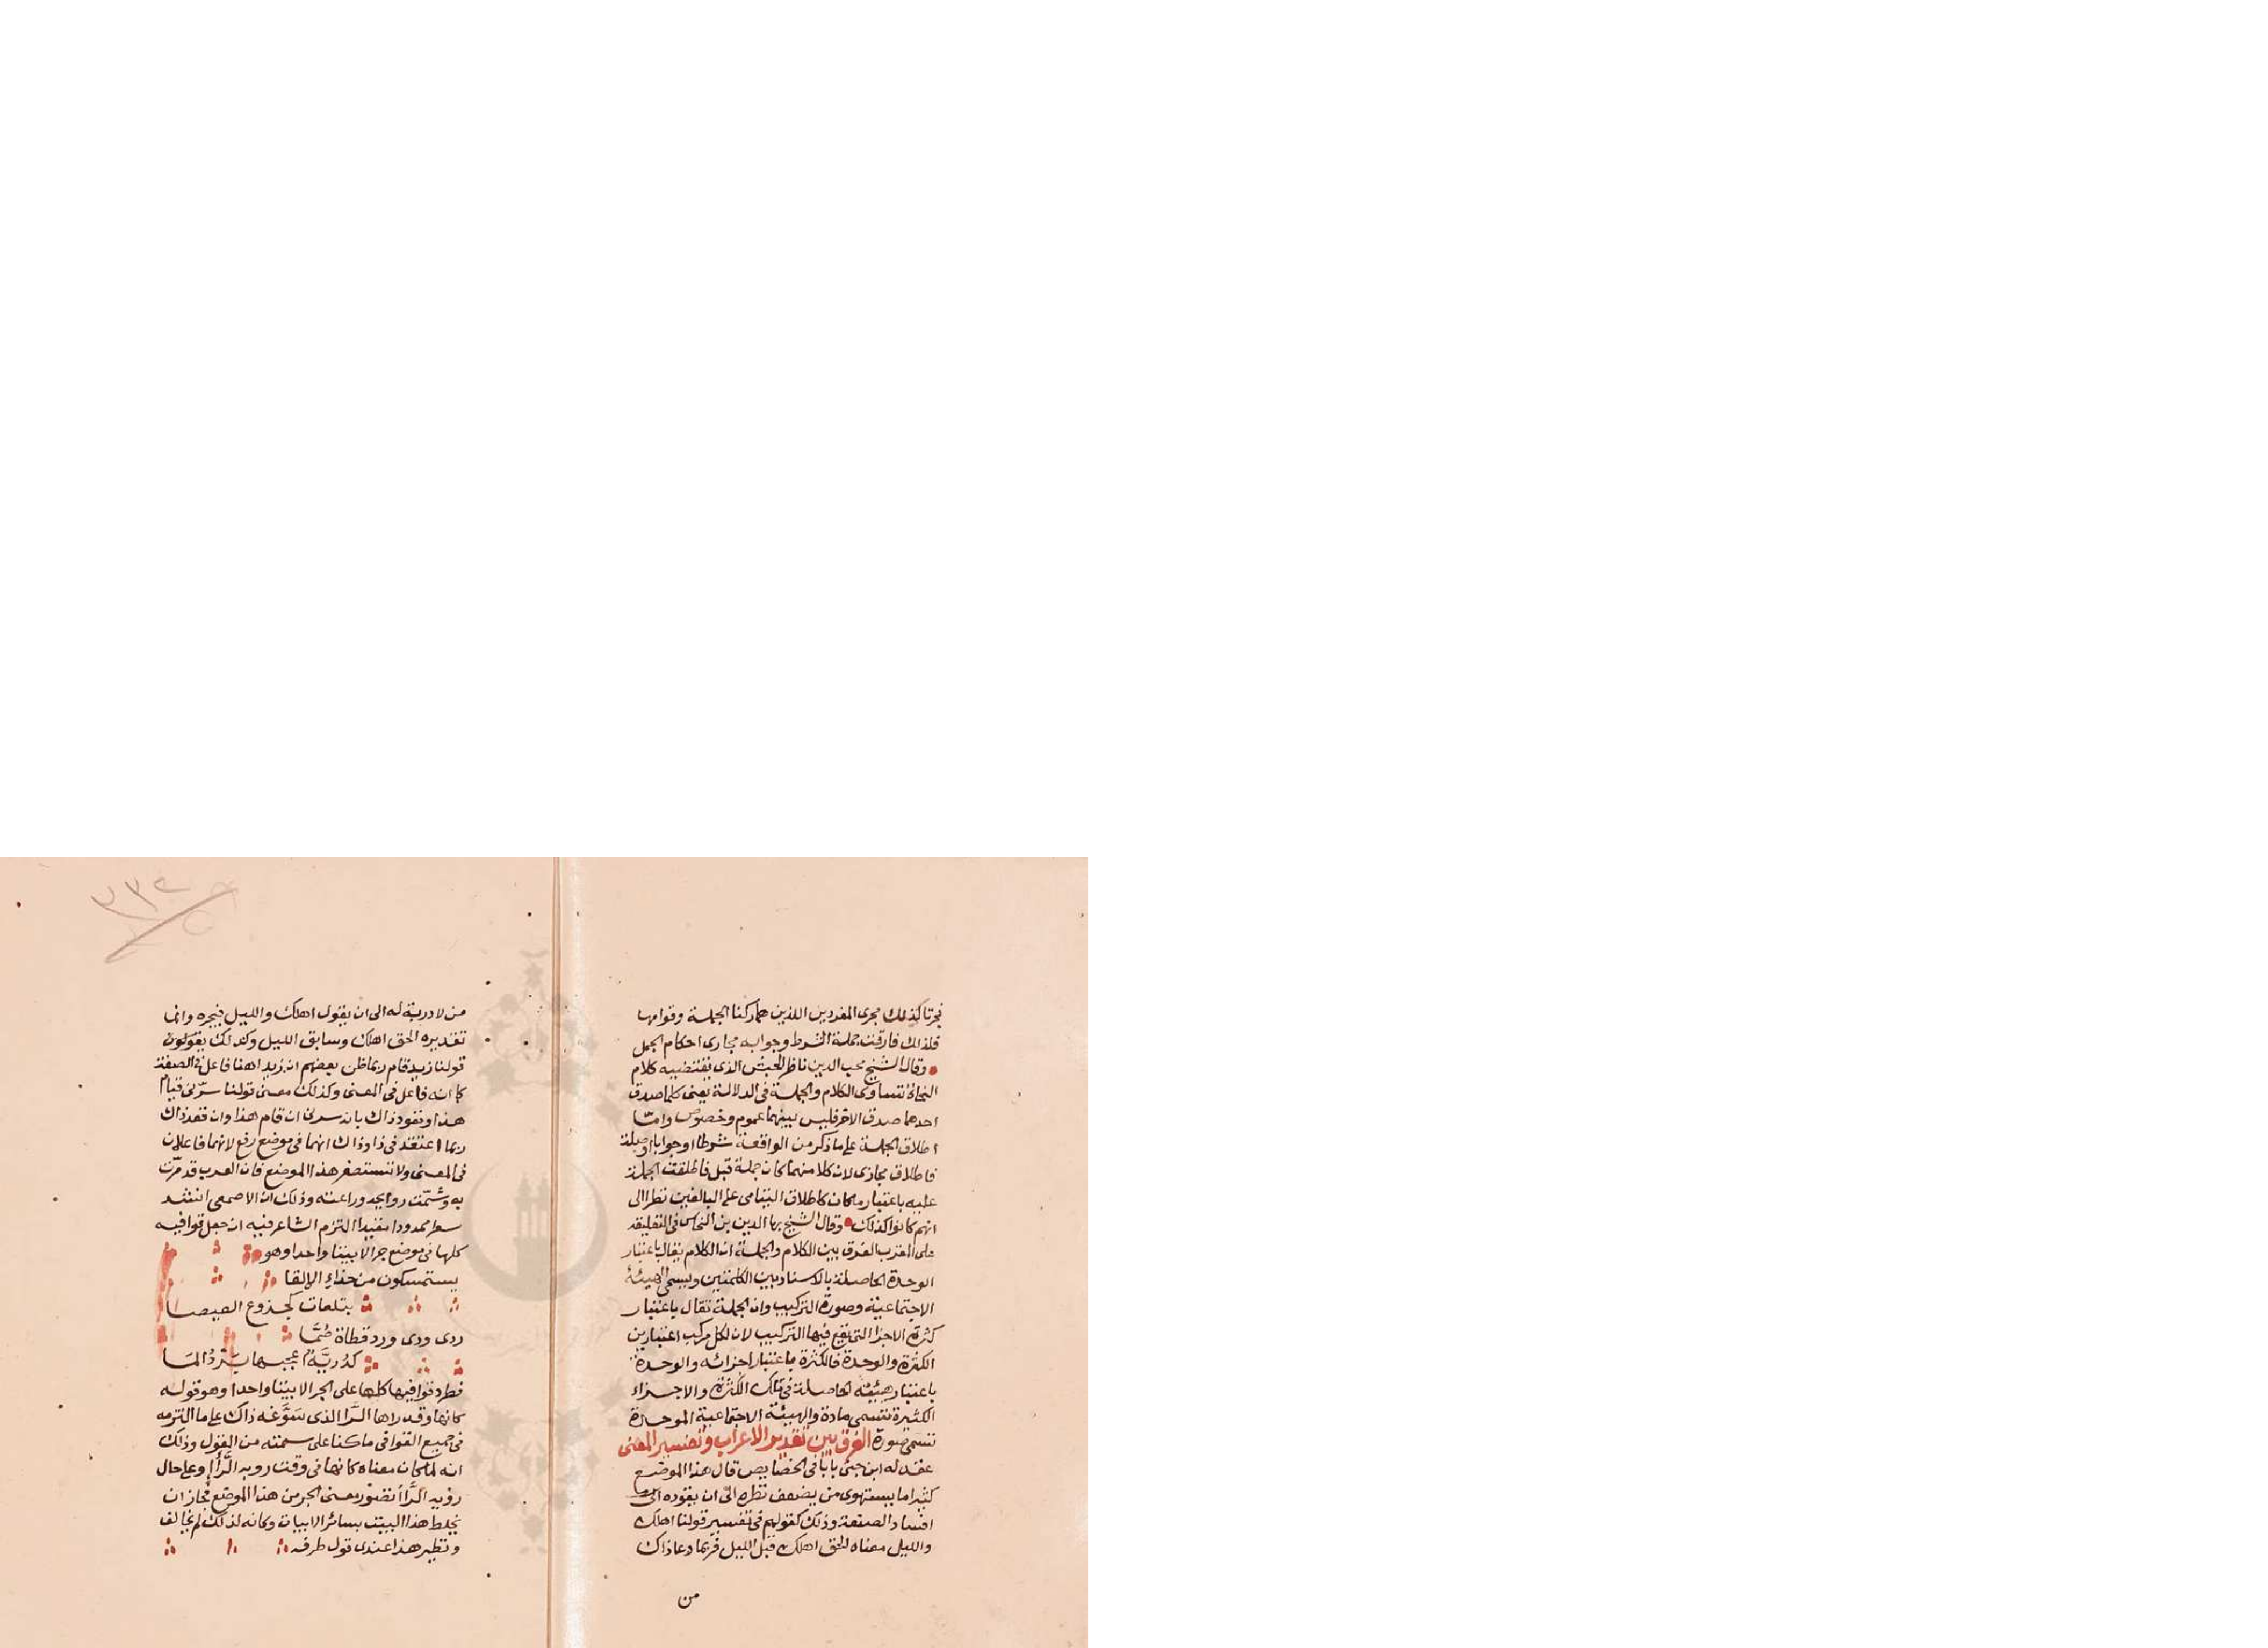 فجرتا كذلك مجرى المفردين اللذين هما ركنا الجملة وقوامها
فلذلك فارقت جملة الشرط وجوابه مجارى احكام الجمل
وقال الشيخ محب الدين ناظر الجيش الذى يقتضيه كلام
النحاة تساوى الكلام والجملة فى الدلالة يعنى كلما صدق
احدهما صدق الاخر فليس بينهما عموم وخصوص وامّا
اطلاق الجملة على ما ذكر من الواقعة شرطا اوجوابا اوصلة
فاطلاق مجازى لان كلا منهما كان جملة قبل فاطلقت الجملة
عليه باعتبار ما كان كاطلاق اليتامى على البالغين نظرا الى
انهم كانوا كذلك وقال الشيخ بها الدين بن النحاس فى التعليقة
على المقرب الفرق بين الكلام والجملة ان الكلام يقال باعتبار
الوحدة الحاصلة بالاسناد بين الكلمتين ويسمى الهيئة
الاجتماعية وصورة التركيب وان الجملة تقال باعتبار
كثرة الاجزا التى يقع فيها التركيب لان لكل مركب اعتبارين
الكثرة والوحدة فالكثرة باعتبار اجزائه والوحدة
باعتبار هيئته الحاصلة فى تلك الكثرة والاجزاء
الكثيرة تسمى مادة والهيئة الاجتماعية الموحدة
تسمى صورة الفرق بين تقدير الاعراب وتفسير المعنى
عقد له ابن جنى بابا فى الخصايص قال هذا الموضع
كثيرا ما يستهوى من يضعف نظره الى ان يقوده الى
افساد الصنعة وذلك كقولهم فى تفسير قولنا اهلك
والليل معناه الحق اهلك قبل الليل فربما دعا ذاك
من
٢٣٢
من لا دربة له الى ان يقول اهلك والليل فيجره وانما
تقديره الحق اهلك وسابق الليل وكذلك يقولون
قولنا زيد قام ربما ظن بعضهم ان زيدا هنا فاعل فى الصفة
كما انه فاعل فى المعنى وكذلك معنى قولنا سرّنى قيام
هذا وقعود ذاك بانه سرنى ان قام هذا وان قعد ذاك
ربما اعتقد فى ذا وذاك انهما فى موضع رفع لانهما فاعلان
فى المعنى ولا تستصغر هذا الموضع فان العرب قد مرّت
به وشمّت روايحه وراعته وذلك ان الاصمعى انشد
شعرا ممدودا مقيدا التزم الشاعر فيه ان جعل قوافيه
كلها فى موضع جر الا بيتا واحدا وهو
يستمسكون من حذاء الالقا
بتلعات كجذوع الصيصا
ردى ردى ورد قطاة صُمَّا
كدُريَّة اعجبها بَرْدُ المَا
فطرد قوافيها كلها على الجر الا بيتا واحدا وهو قوله
كانها وقد راها الرَّا الذى سَوَّغه ذاك على ما التزمه
فى جميع القوافى ما كنا على سمته من القول وذلك
انه لما كان معناه كانها فى وقت روية الرَّا او على حال
روية الرَّا تصور معنى الجر من هذا الموضع فجاز ان
يخلط هذا البيت بسائر الابيات وكانه لذلك لم يخالف
ونظير هذا عندى قول طرفه